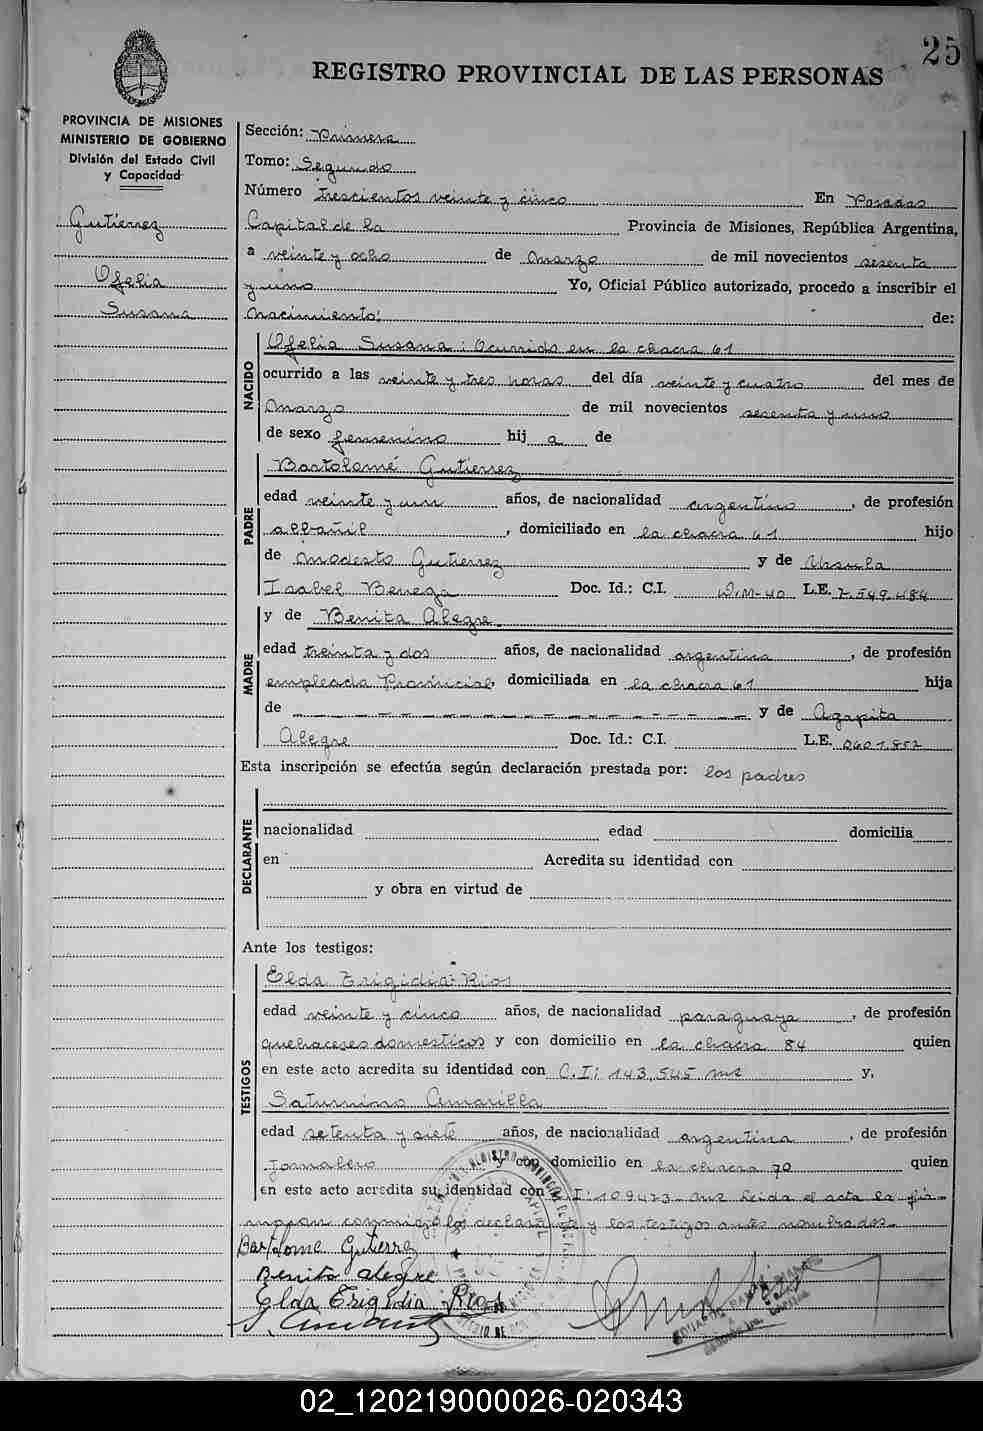 25
REGISTRO PROVINCIAL DE LAS PERSONAS
PROVINCIA DE MISIONES
MINISTERIO DE GOBIERNO
División del Estado Civil
y Capacidad
Gutiérrez
Ofelia
Susana
Sección: Primera
Tomo: Segundo
Número trescientos veinte y cinco En Posadas
Capital de la Provincia de Misiones, República Argentina,
a veinte y ocho de Marzo de mil novecientos sesenta
y uno Yo, Oficial Público autorizado, procedo a inscribir el
Nacimiento: de:
NACIDO
Ofelia Susana: Ocurrido en la chacra 61
ocurrido a las veinte y tres horas del día veinte y cuatro del mes de
Marzo de mil novecientos sesenta y uno
de sexo femenino hij a de
PADRE
Bartolomé Gutierrez
edad veinte y un años, de nacionalidad argentino, de profesión
albañil, domiciliado en la chacra 61 hijo
de Modesto Gutierrez y de Ursula
Isabel Benega Doc. Id.: C.I. D.M-40 L.E. 7.549.484
MADRE
y de Benita Alegre
edad treinta y dos años, de nacionalidad argentina, de profesión
empleada Provincial, domiciliada en la chacra 61 hija
de y de Agapita
Alegre Doc. Id.: C.I. L.E. 0401.857
Esta inscripción se efectúa según declaración prestada por: los padres
DECLARANTE
nacionalidad edad domicilia
en Acredita su identidad con
y obra en virtud de
Ante los testigos:
TESTIGOS
Elda Erigidia Rios
edad veinte y cinco años, de nacionalidad paraguaya, de profesión
quehaceres domesticos y con domicilio en la chacra 84 quien
en este acto acredita su identidad con C.I: 143.545 mz y,
Saturnino Amarilla
edad setenta y siete años, de nacionalidad argentina, de profesión
Jornalero y con domicilio en la chacra 70 quien
en este acto acredita su identidad con C.I: 109473- mz Leida el acta la fir-
man conmigo los declarante y los testigos antes nombrados-
Bartolome Gutierrez
Benita Alegre
Elda Erigidia Rios
02_120219000026-020343